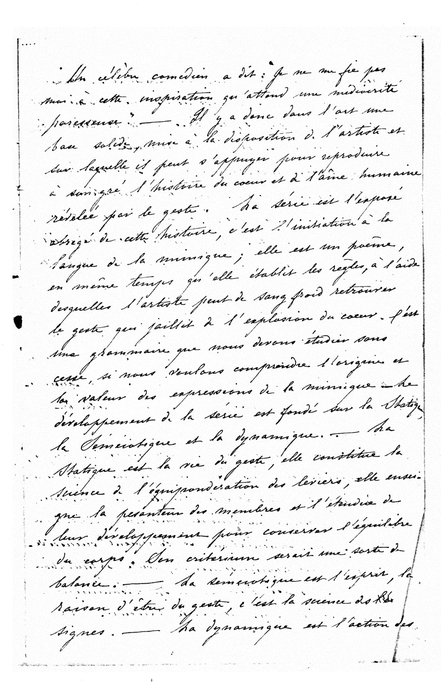 "Un célèbre comédien a dit: "Je ne me fie pas
moi à cette inspiration qu'attend une médiocrité
paresseuse" — Il y a donc dans l'art une
base solide, mise à la disposition de l'artiste et
sur laquelle il peut s'appuyer pour reproduire
à son gré l'histoire du coeur et de l'âme humaine
révélée par le geste. La série est l'exposé
abrégé de cette histoire, c'est l'initiation à la
langue de la mimique; elle est un poème,
en même temps qu'elle établit les règles, à l'aide
desquelles l'artiste peut de sang froid retrouver
le geste qui jaillit de l'explosion du coeur. C'est
une grammaire que nous devons étudier sans
cesse, si nous voulons comprendre l'origine et
la valeur des expressions de la mimique — Le
développement de la série est fondé sur la Statique
la Séméiotique et la dynamique. — La
Statique est la vie du geste, elle constitue la
science de l'équipondération des leviers, elle ensei-
gne la pesanteur des membres et l'étendue de
leur développement pour conserver l'équilibre
du corps. Son critérium serait une sorte de
balance. — La séméiotique est l'esprit, la
raison d'être du geste, c'est la science des
signes. — La dynamique est l'action des